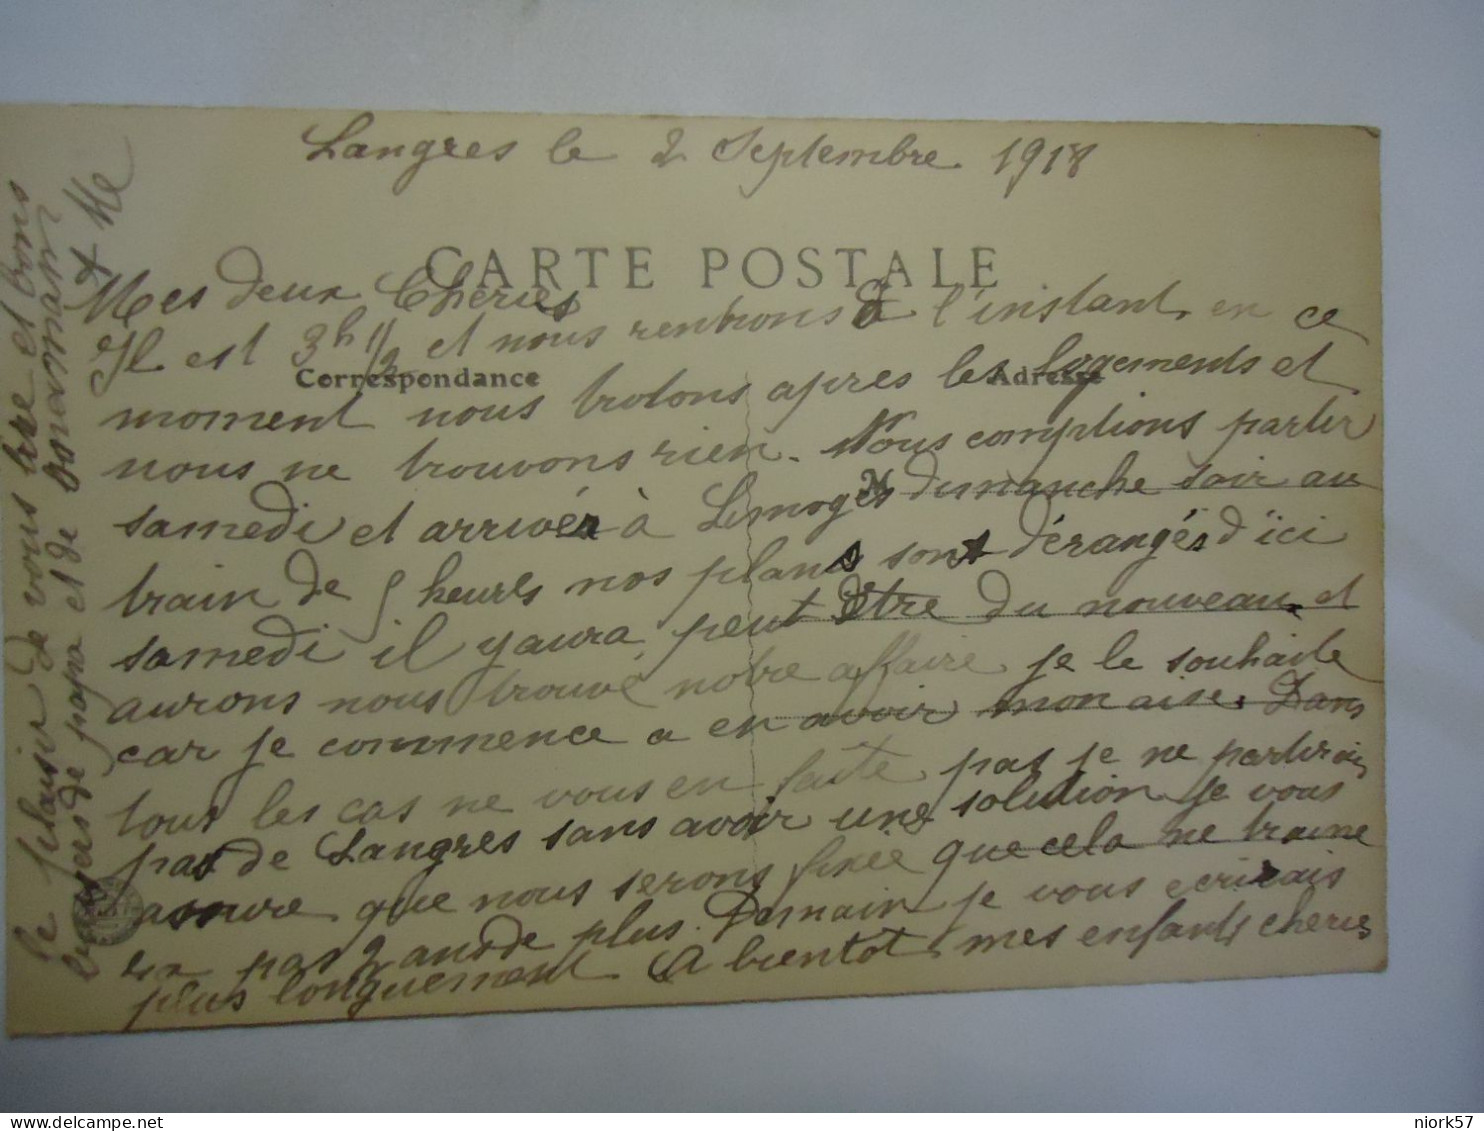 Langres le 2 Septembre 1918
CARTE POSTALE
Mes deux Chéries
Il est 3h 1/2 et nous rentrons à l'instant, en ce
Correspondance
Adresse
moment nous trotons apres les logements et
nous ne trouvons rien. Nous comptions partir
samedi et arriver à Limoges dimanche soir au
M
train de 5 heures nos plans sont dérangés d'ici
samedi il y aura peut être du nouveau et
aurons nous trouvé notre affaire je le souhaite
car je commence a en avoir mon aise. Dans
tous les cas ne vous en faite pas je ne partirais
pas de Langres sans avoir une solution je vous
assure que nous serons fixée que cela ne traine
en pas 2 ans de plus. Demain je vous ecrirais
plus longuement A bientot mes enfants cheries
le plaisir de vous lire et bons
baisers de papa et de bonamaman
+ Me
niork57